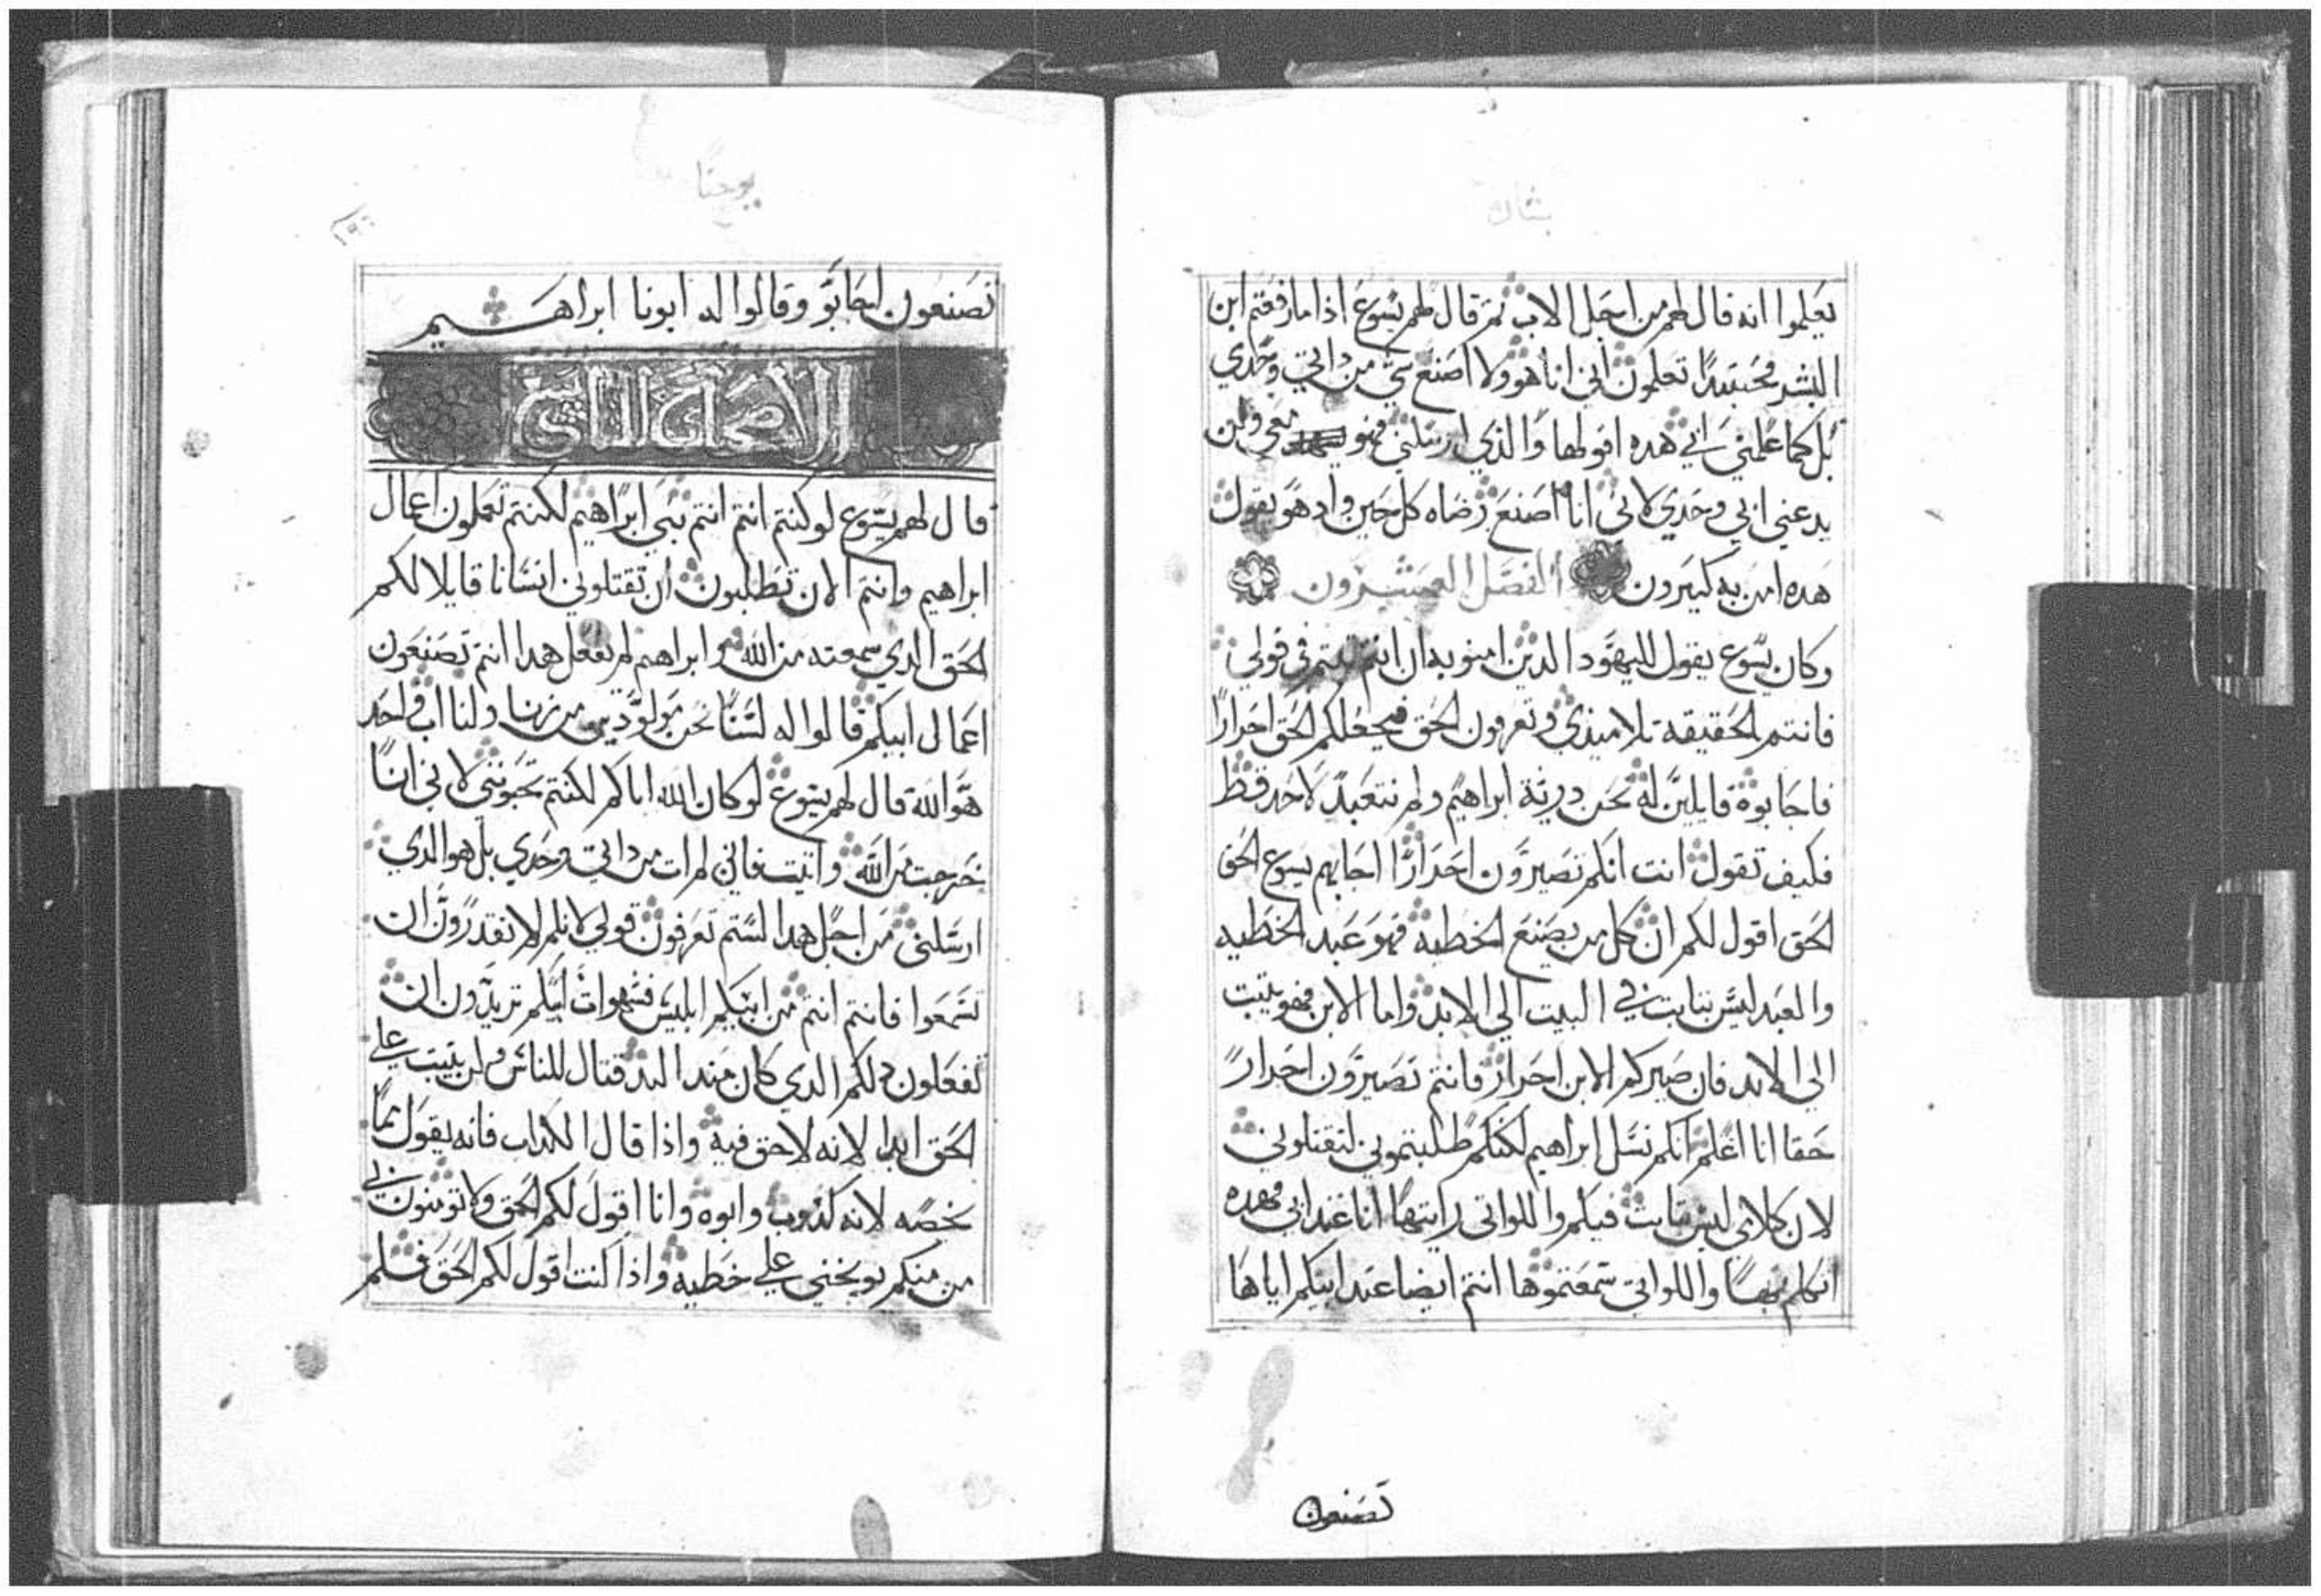 بشارة
يعلموا انه قال لهم من اجل الاب ثم قال لهم يسوع اذا ما رفعتم ابن
البشر فحينيدا تعلمون انني انا هو ولا اصنع شي من داتي وحدي
بل كما علمني ابي هده اقولها والذي ارسلني فهو معي ولن
يدعني ابي وحدي لاني انا اصنع رضاه كل حين واد هو يقول
هده امن به كثيرون الفصل العشرون
وكان يسوع يقول لليهود الدين امنو به ان انتم ثبتم في قولي
فانتم الحقيقة تلاميذي وتعرفون الحق فيجعلكم الحق احرارا
فاجابوه قايلين له نحن درية ابراهيم ولم نتعبد لاحد قط
فكيف تقول انت انكم تصيرون احرارا اجابهم يسوع الحق
الحق اقول لكم ان كل من يصنع الخطيه فهو عبد الخطيه
والعبد ليس بتابت في البيت الي الابد واما الابن فهو يتبت
الي الابد فان صيركم الابن احرار فانتم تصيرون احرارً
حقا انا اعلم انكم نسل ابراهيم لكنكم طلبتموني لتقتلوني
لان كلامي ليس تابت فيكم واللواتي رايتها انا عند ابي فهده
اتكلم بها واللواتي سمعتموها انتم ايضا عند ابيكم اياها
تصنعون
يوحنا
١٩٦
تصنعون اجابو وقالوا له ابونا ابراهيم
الاصحاح الثاني
قال لهم يسوع لو كنتم انتم انتم بني ابراهيم لكنتم تعملون اعمال
ابراهيم وانتم الان تطلبون ان تقتلوني انسانا قايلا لكم
الحق الدي سمعته من الله وابراهيم لم يفعل هدا انتم تصنعون
اعمال ابيكم قالوا له لسنا نحن مولودين من زنا ولنا اب واحد
هو الله قال لهم يسوع لو كان الله اباكم لكنتم تحبونني لاني انا
خرجت من الله واتيت فاني لم ات من داتي وحدي بل هو الدي
ارسلني من اجل هدا لستم تعرفون قولي لانكم لا تقدرون ان
تسمعوا فانتم انتم من ابيكم ابليس فشهوات ابيكم تريدون ان
تفعلون دلكم الدي كان مند البد قتال للناس ولن يثبت علي
الحق ابدا لانه لا حق فيه واذا قال الكداب فانه يقول مما
يخصه لانه كدوب وابوه وانا اقول لكم الحق ولا تومنون بي
من منكم يوبخني علي خطيه واذا كنت اقول لكم الحق فلم